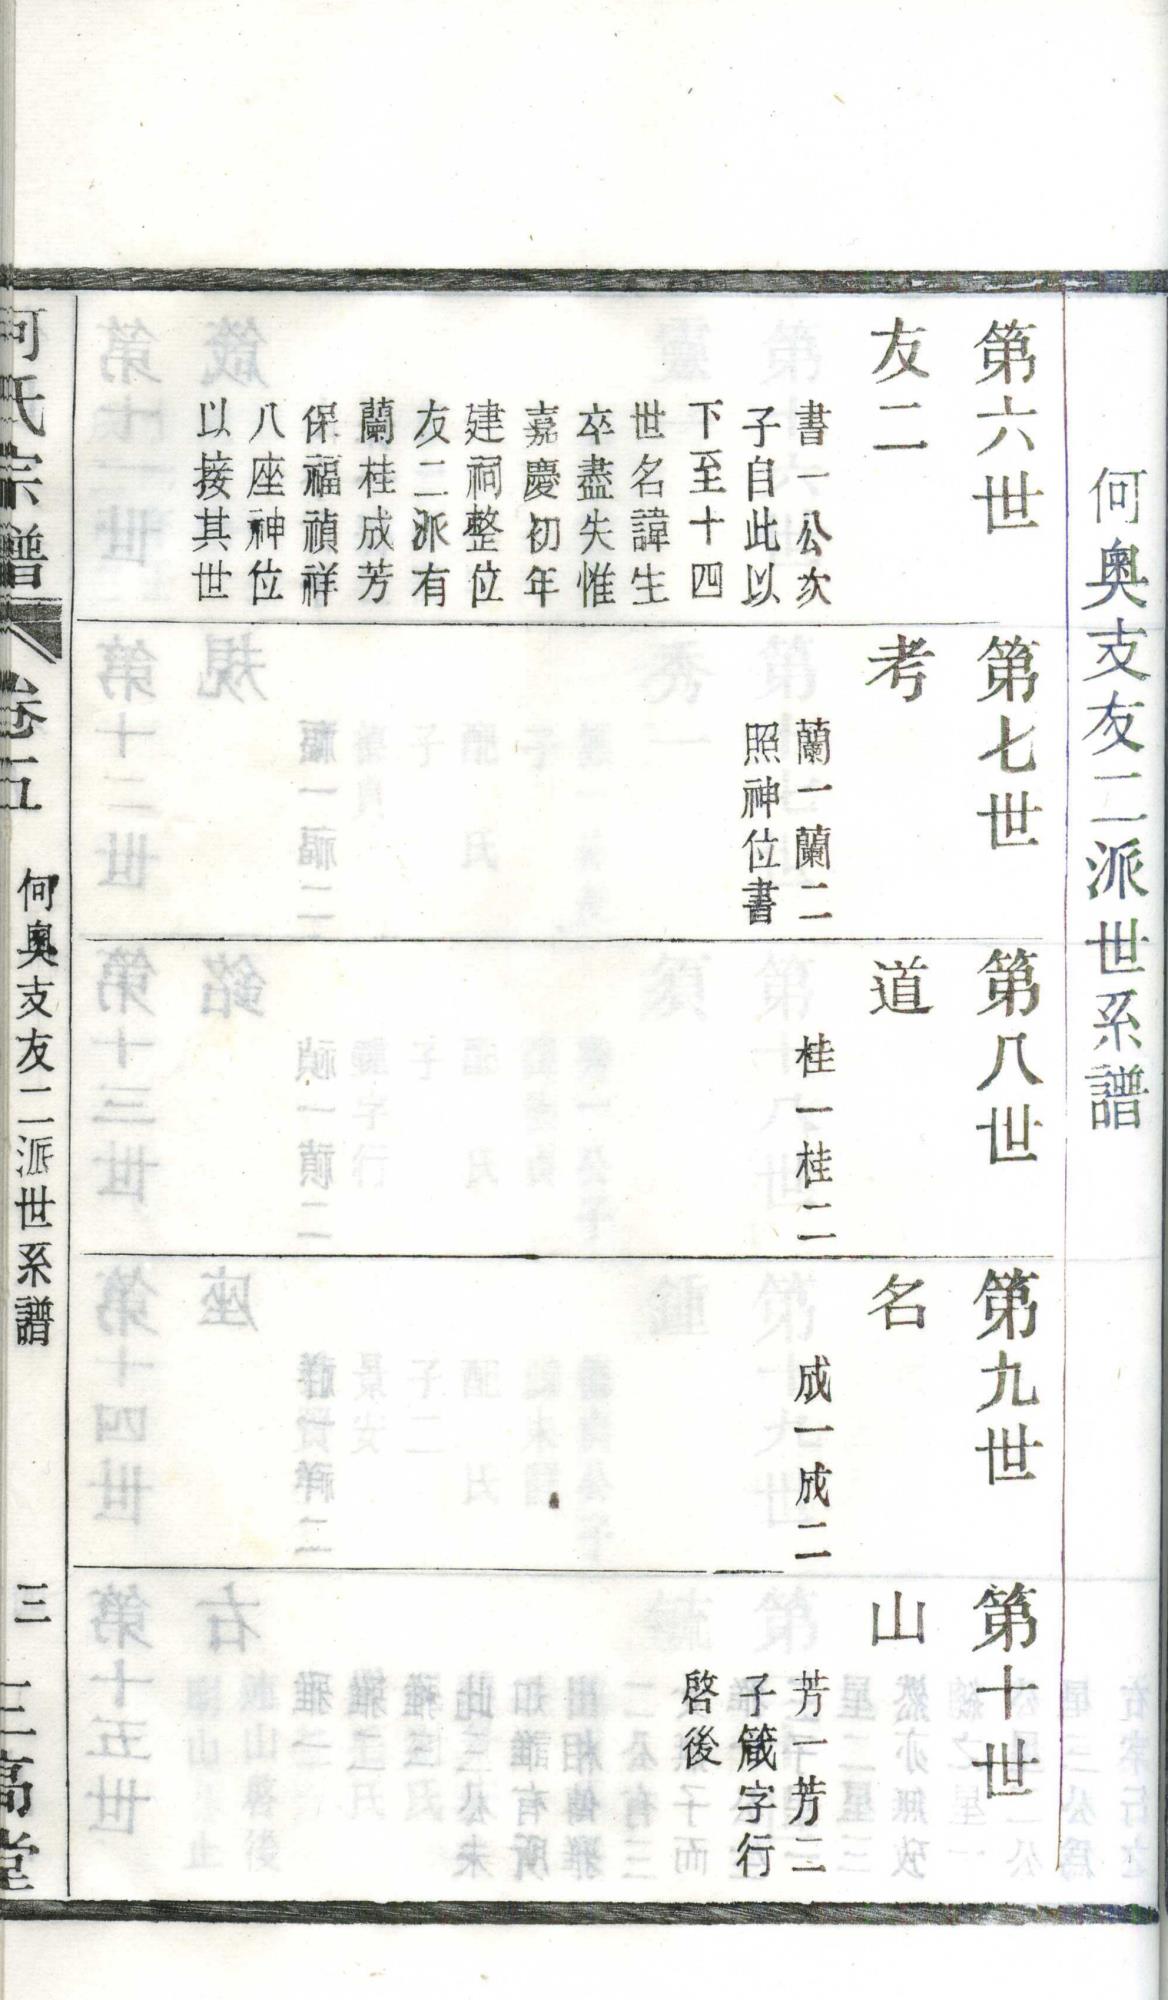 何奧支友二派世系譜
第六世
友二
書一公次
子自此以
下至十四
世名諱生
卒盡失惟
嘉慶初年
建祠整位
友二派有
蘭桂成芳
保福禎祥
八座神位
以接其世
第七世
考
蘭一蘭二
照神位書
第八世
道
桂一桂二
第九世
名
成一成二
第十世
山
芳一芳二
子箴字行
啓後
何氏宗譜
卷五
何奧支友二派世系譜
三
三高堂